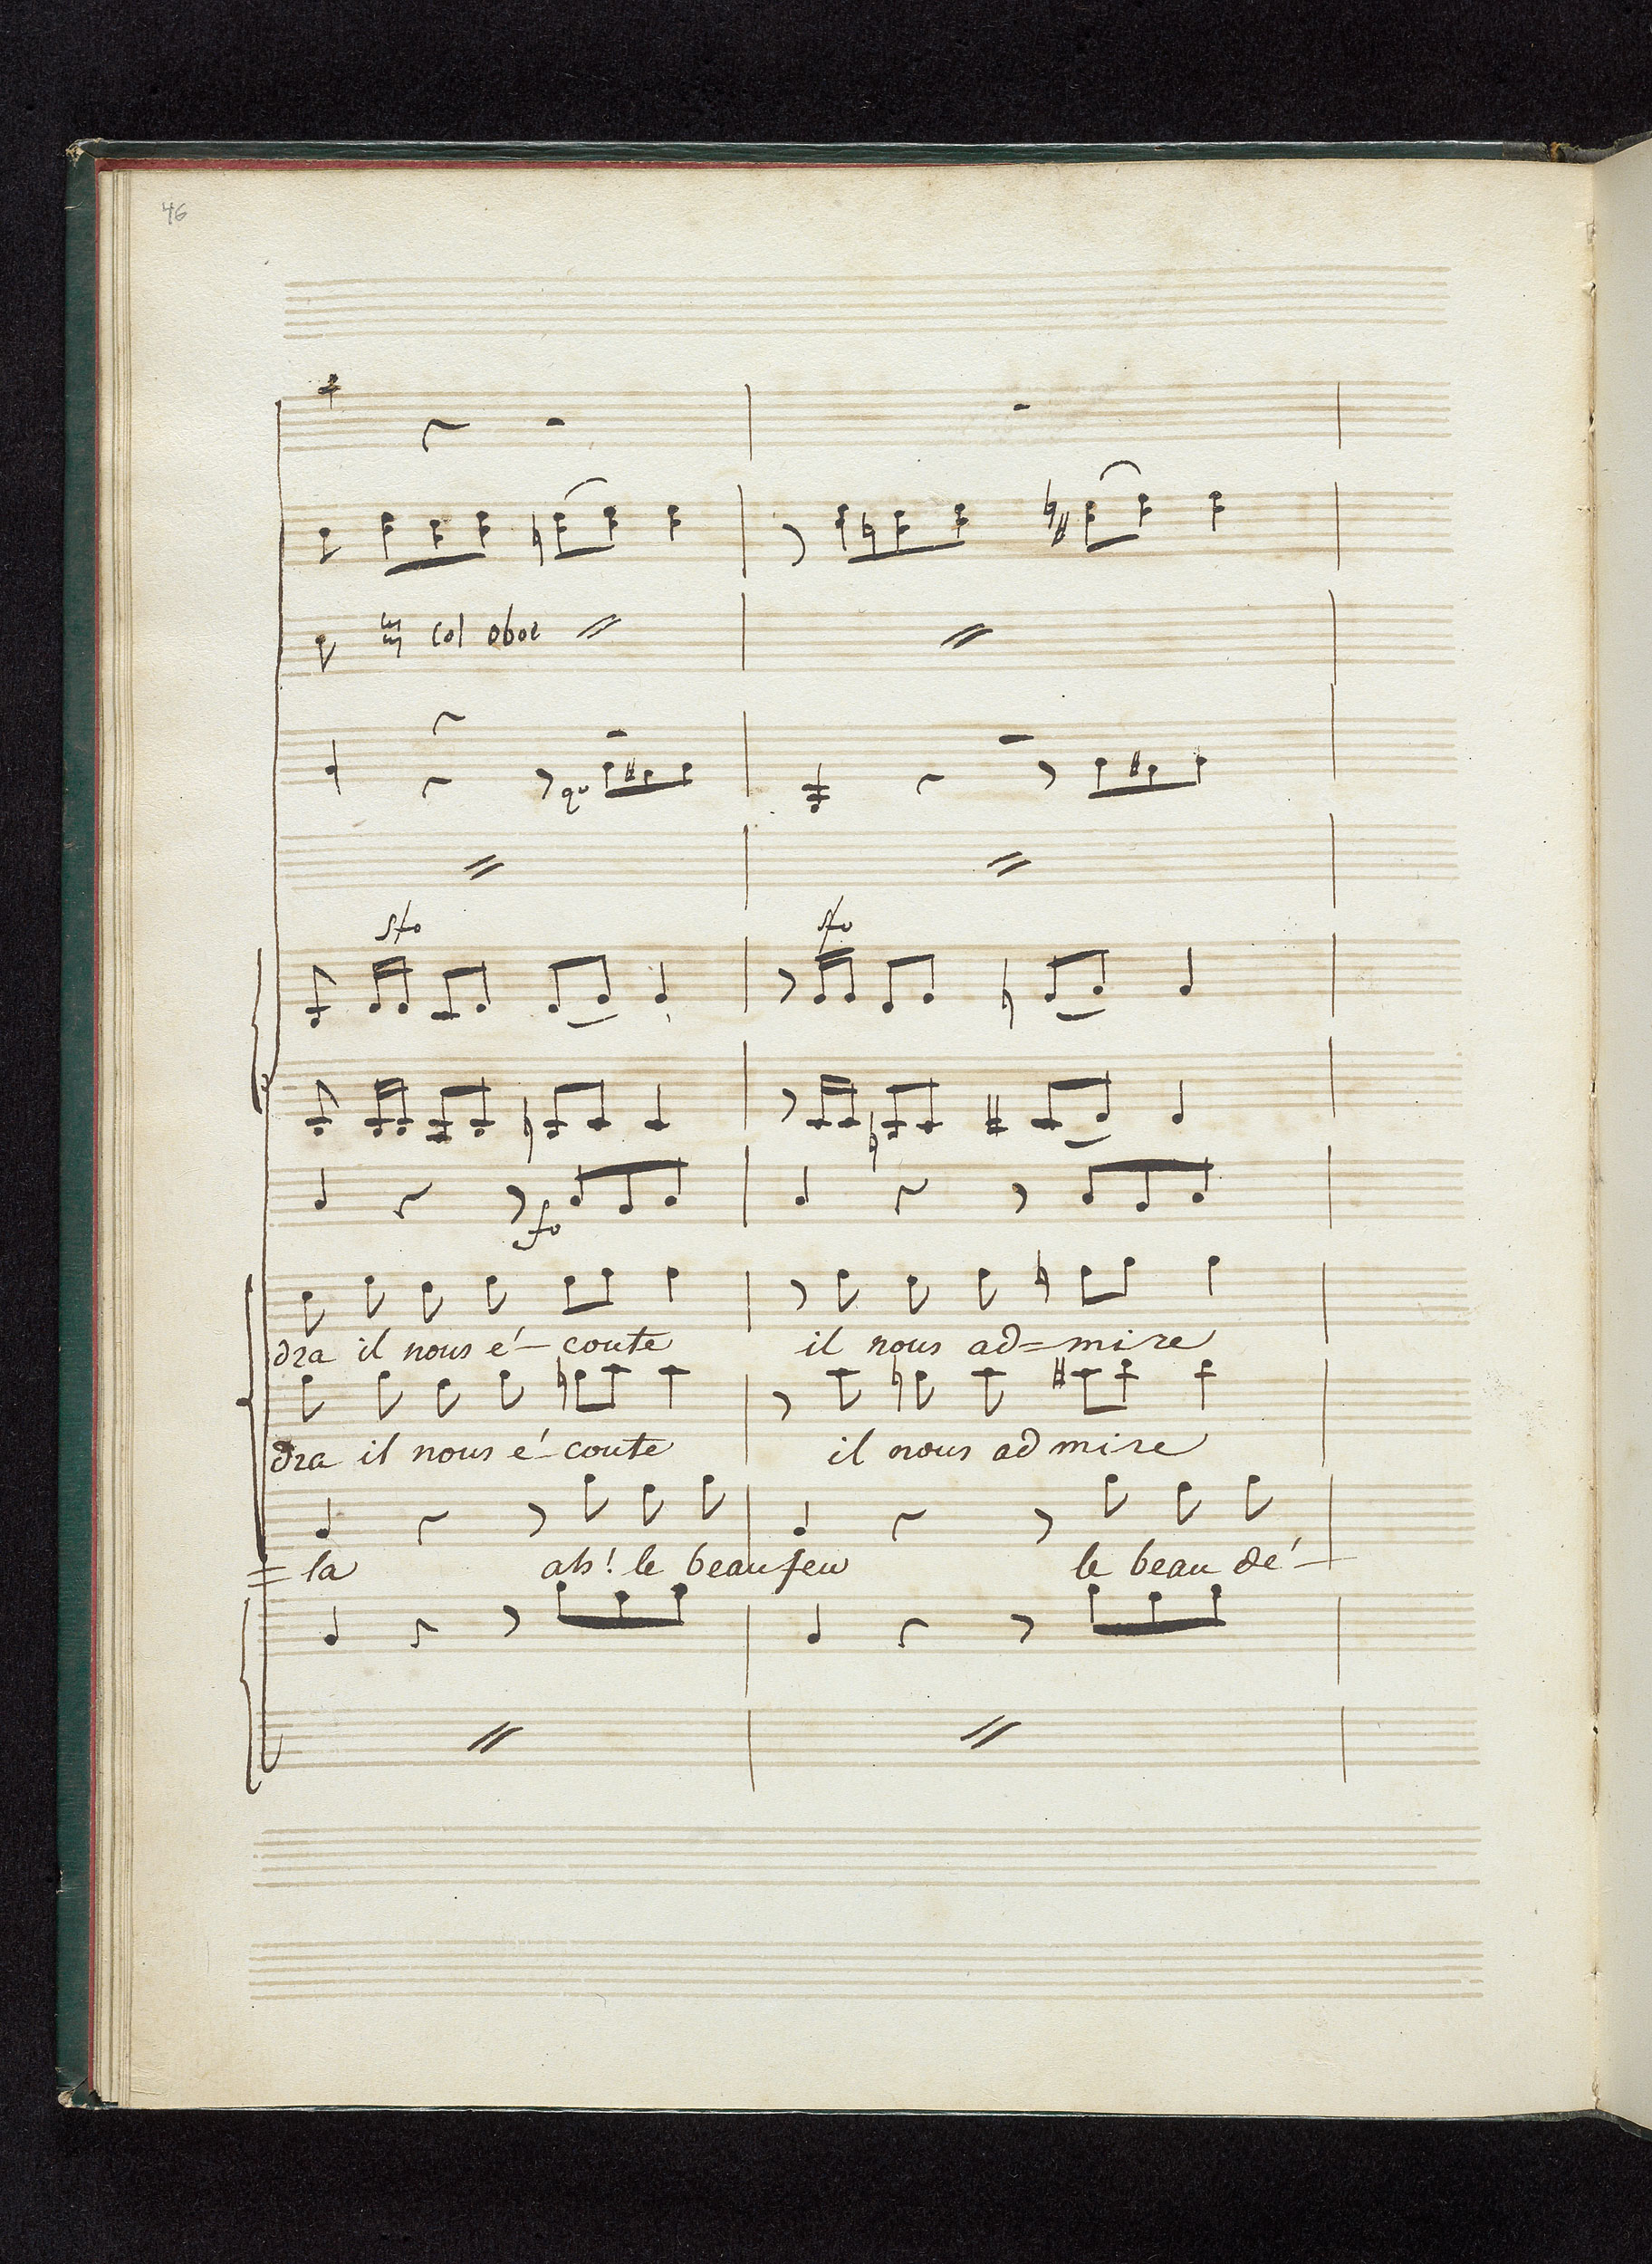 46
col oboe
sfo sfo
sfo
dra il nous é-coute il nous ad=mire
dra il nous é-coute il nous admire
=la ah! le beau feu le beau dé-